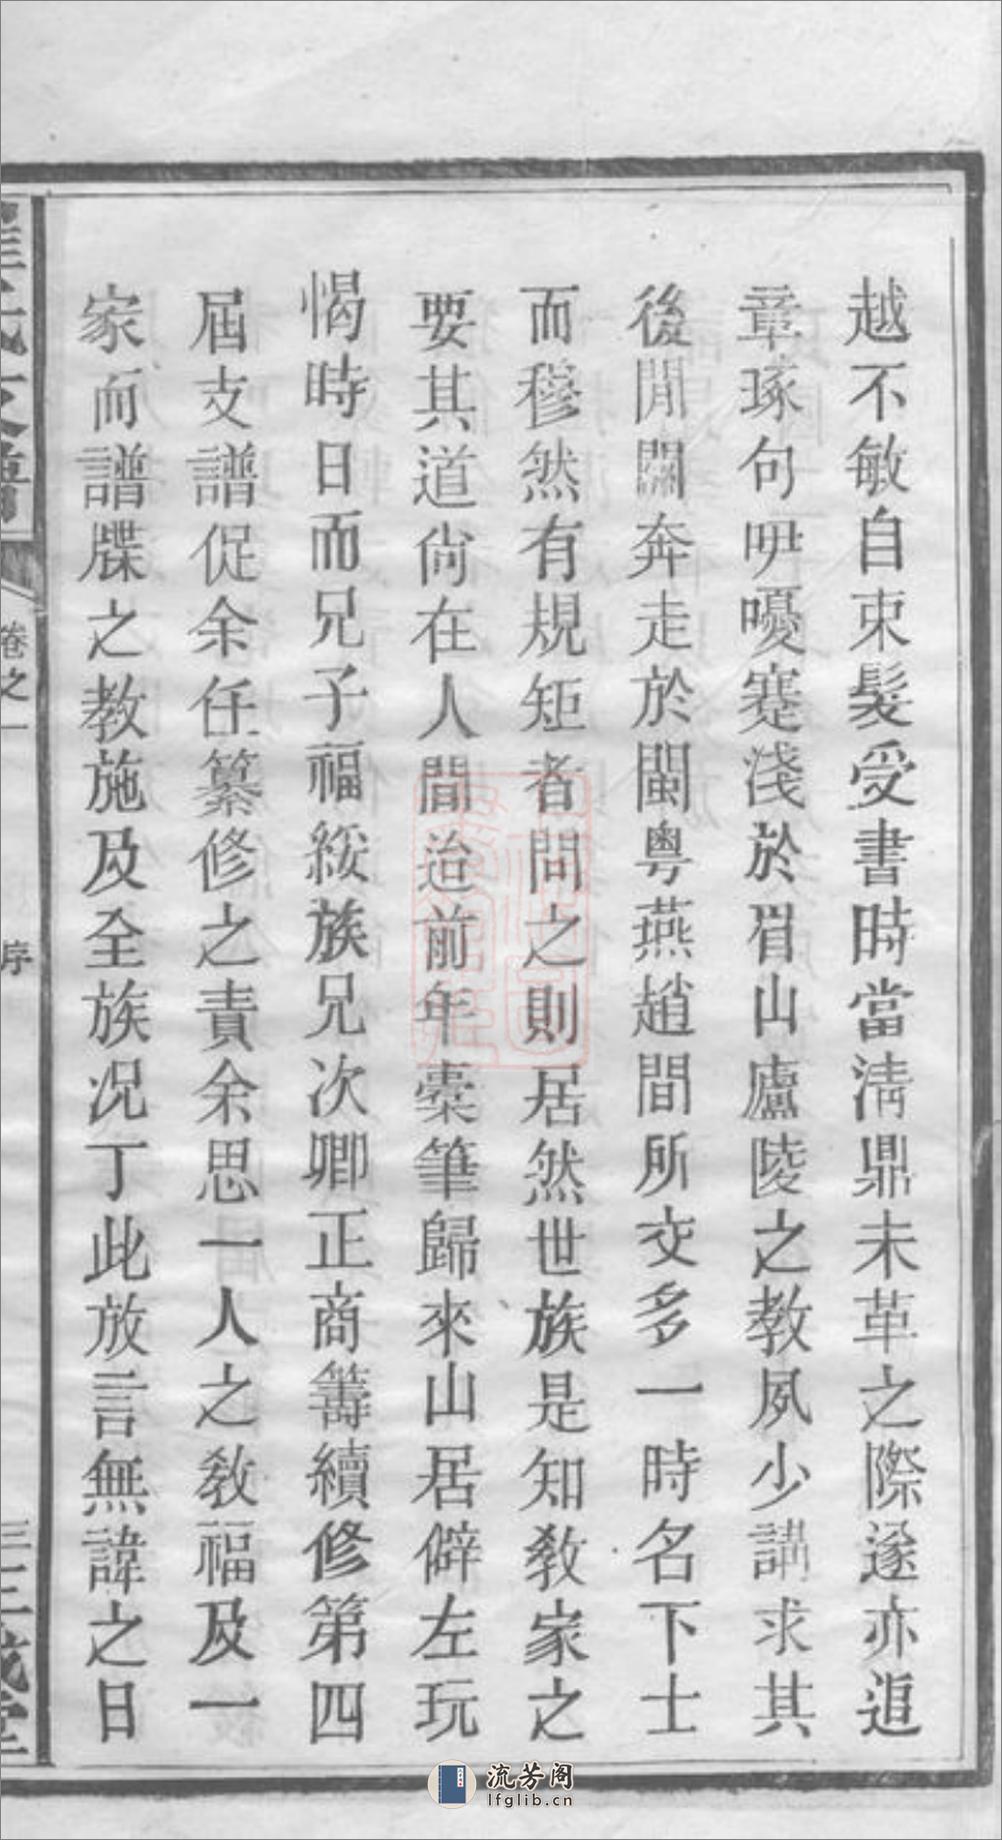 越不敏自束髮受書時當淸鼎未革之際遂亦追
章琢句呀嚘蹇淺於眉山廬陵之教夙少講求其
後閒關奔走於閩粤燕趙間所交多一時名下士
而穆然有規矩者問之則居然世族是知敎家之
要其道尙在人間迨前年橐筆歸來山居僻左玩
愒時日而兄子福綏族兄次卿正商籌續修第四
屆支譜促余任纂修之責余思一人之敎福及一
家而譜牒之教施及全族况丁此放言無諱之日
氏支譜
卷之一
序
三
流芳阁
lfglib.cn